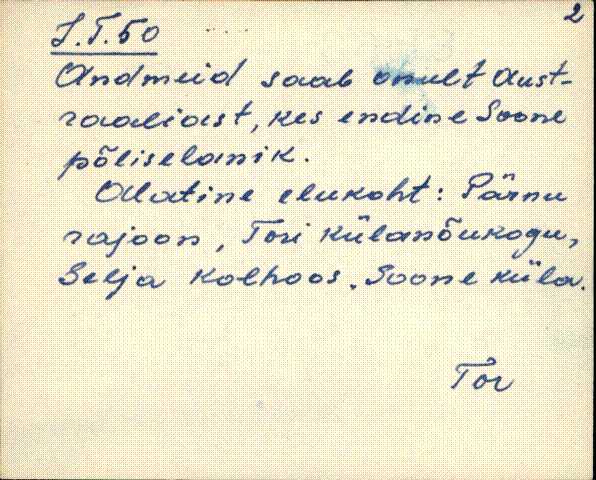 2
J.T.50
Andmeid saab onult Aust-
raaliast, kes endine Soone
põliselanik.
Alatine elukoht: Pärnu
rajoon, Tori külanõukogu,
Selja kolhoos. Soone küla.
Tor